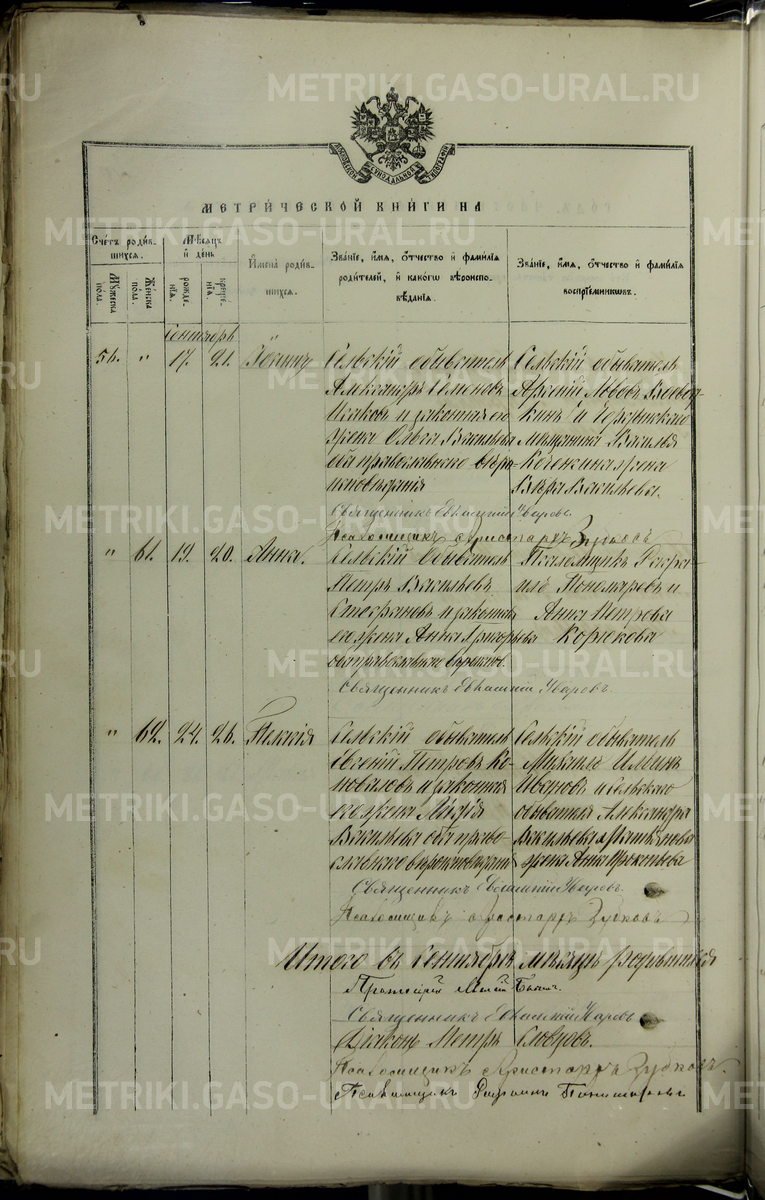 METRIKI.GASO-URAL.RU
МЕТРИЧЕСКОЙ КНИГИ НА
Счетъ родив-
шихся.
Мужеска
пола.
Женска
пола.
Мѣсяцъ
и день
рожде-
нія.
креще-
нія.
Имена родив-
шихся.
Званіе, имя, отчество и фамилія
родителей, и какого вѣроиспо-
вѣданія.
Званіе, имя, отчество и фамилія
воспріемниковъ.
Сентябрь
56. " 17. 21.
Сельскій обыватель
Александръ Семеновъ
и законная его
жена Ольга Васильева
оба православнаго вѣро-
исповѣданія
Сельскій обыватель
Арсеній Львовъ
и
мѣщанина Василья
жена
Вѣра Васильева.
Священникъ Евлампій Уваровъ.
Псаломщикъ Аристархъ Зубковъ
" 61. 19. 20. Анна.
Сельскій Обыватель
Петръ Васильевъ
и законная
его жена Анна Григорьева
оба православнаго
Псаломщикъ
Пономаревъ и
Анна Петрова
Корюкова
Священникъ Евлампій Уваровъ.
" 62. 24. 26.
Сельскій обыватель
Евсевій Петровъ Ко-
новаловъ и законная
его жена Лидія
Васильева оба право-
славнаго вѣроисповѣданія
Сельскій обыватель
Михаилъ
Ивановъ и сельскаго
обывателя Александра
Васильева
жена Анна
Священникъ Евлампій Уваровъ.
Псаломщикъ Аристархъ Зубковъ
Итого въ Сентябрѣ мѣсяцѣ родившихся
Протоіерей
Священникъ Евлампій Уваровъ
Діаконъ Петръ Словцовъ.
Псаломщикъ Аристархъ Зубковъ.
Псаломщикъ Пономаревъ